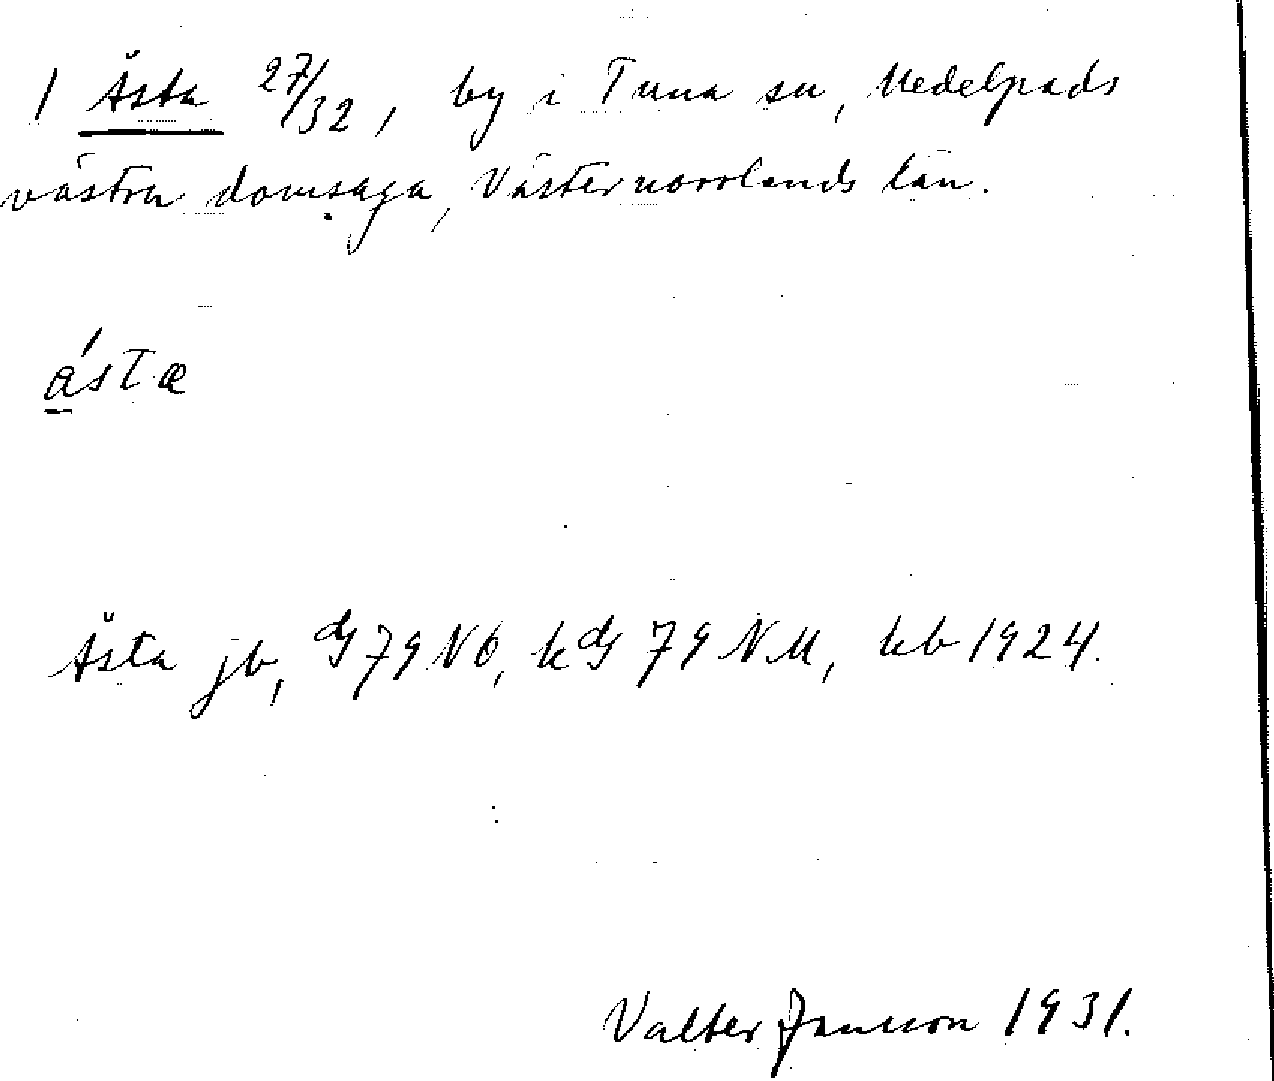 1 Åsta 27/32, by i Tuna sn, Medelpads
västra domsaga, Västernorrlands län.
ásta
Åsta jb, dG 79 NÖ, kdG 79 NM, kb 1924.
Valter Jansson 1931.